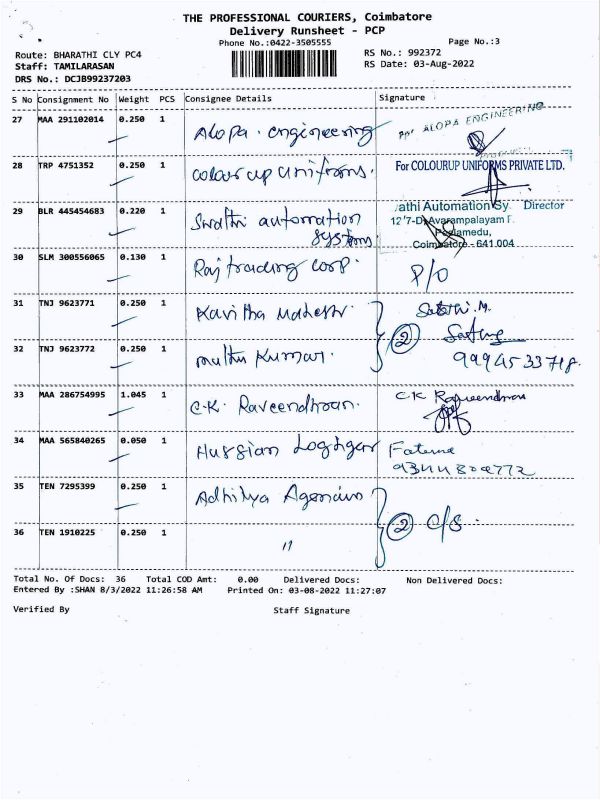 THE PROFESSIONAL COURIERS, Coimbatore
Delivery Runsheet - PCP
Phone No.:0422-3505555
Page No.:3
Route: BHARATHI CLY PC4
RS No.: 992372
Staff: TAMILARASAN
RS Date: 03-Aug-2022
DRS No.: DCJB99237203
S No Consignment No Weight PCS Consignee Details Signature
27 MAA 291102014 0.250 1 Alopa. engineering
ALOPA ENGINEERING
28 TRP 4751352 0.250 1 colour up uniforms.
For COLOURUP UNIFORMS PRIVATE LTD.
Director
29 BLR 445454683 0.220 1 Swathi automation
systems
athi Automation Sy
12'7-D, Avarampalayam
Peelamedu,
Coimbatore - 641 004
30 SLM 300556065 0.130 1 Raj trading corp. P/O
31 TNJ 9623771 0.250 1 Kavitha Mahesh.
32 TNJ 9623772 0.250 1 muthu Kumar. 2
33 MAA 286754995 1.045 1 C.K. Raveendhran.
34 MAA 565840265 0.050 1 Hussian
35 TEN 7295399 0.250 1 Adhitya 2 C/S.
36 TEN 1910225 0.250 1 "
Total No. Of Docs: 36 Total COD Amt: 0.00 Delivered Docs: Non Delivered Docs:
Entered By :SHAN 8/3/2022 11:26:58 AM Printed On: 03-08-2022 11:27:07
Verified By Staff Signature